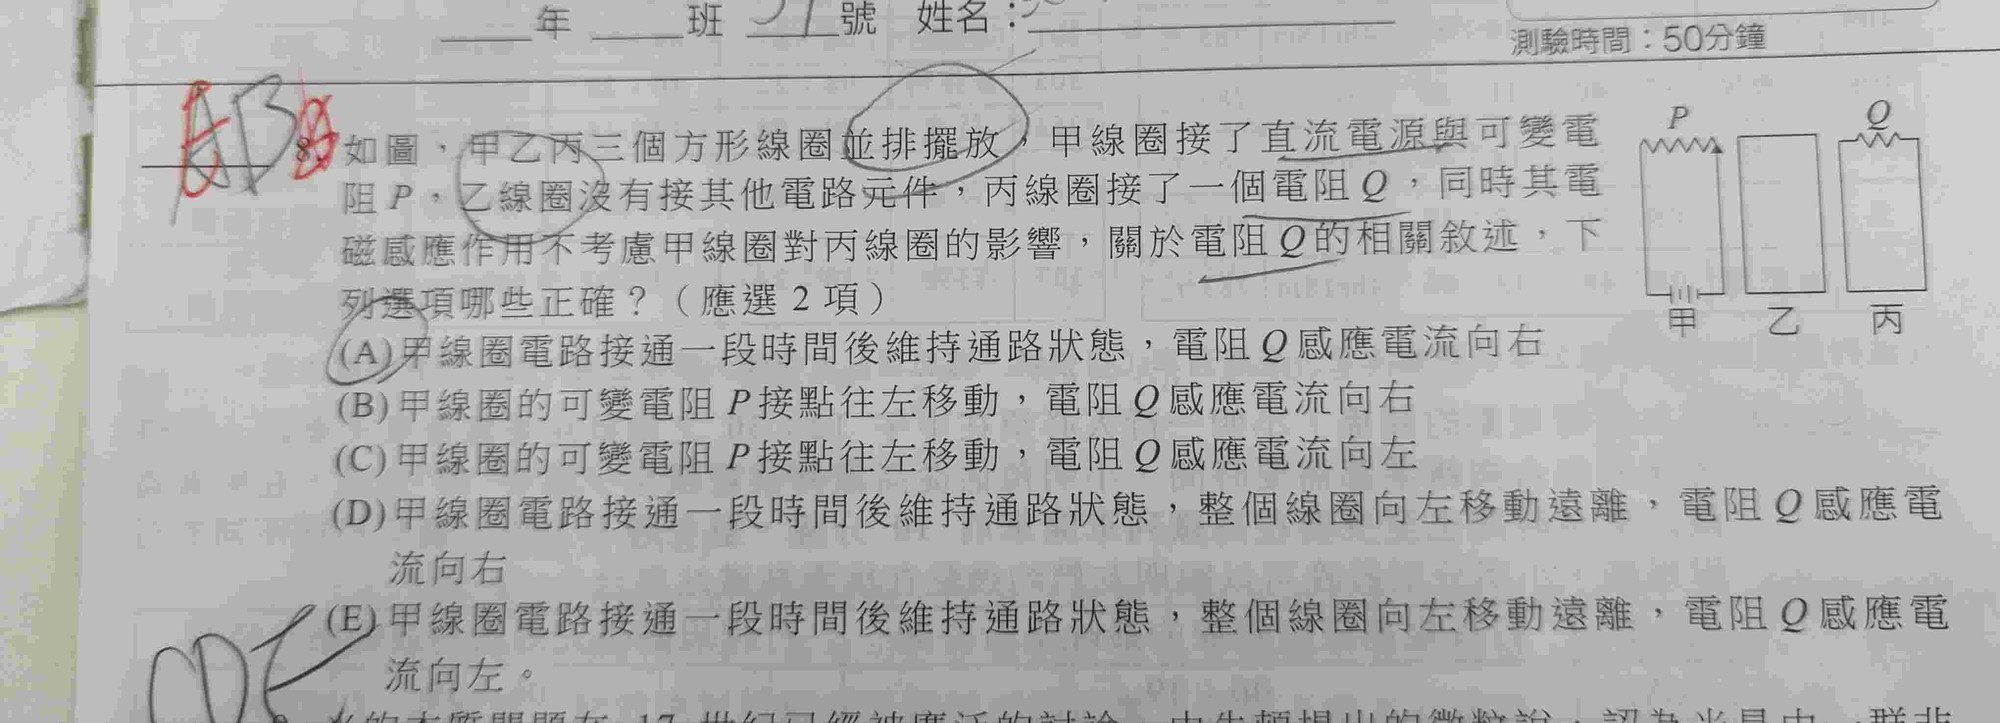 年 班 號 姓名：
測驗時間：50分鐘
AB
8. 如圖，甲乙丙三個方形線圈並排擺放，甲線圈接了直流電源與可變電
阻 P，乙線圈沒有接其他電路元件，丙線圈接了一個電阻 Q，同時其電
磁感應作用不考慮甲線圈對丙線圈的影響，關於電阻 Q 的相關敘述，下
列選項哪些正確？（應選 2 項）
P Q
甲 乙 丙
(A) 甲線圈電路接通一段時間後維持通路狀態，電阻 Q 感應電流向右
(B) 甲線圈的可變電阻 P 接點往左移動，電阻 Q 感應電流向右
(C) 甲線圈的可變電阻 P 接點往左移動，電阻 Q 感應電流向左
(D) 甲線圈電路接通一段時間後維持通路狀態，整個線圈向左移動遠離，電阻 Q 感應電
流向右
(E) 甲線圈電路接通一段時間後維持通路狀態，整個線圈向左移動遠離，電阻 Q 感應電
流向左。
CDE